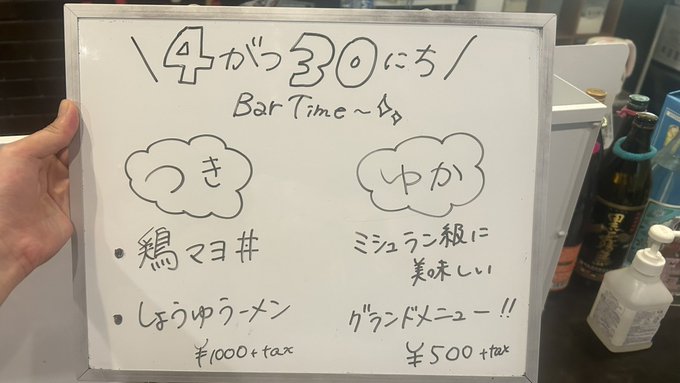 \4がつ30にち/
Bar Time～
つき
・鶏マヨ丼
・しょうゆラーメン
¥1000+tax
ゆか
ミシュラン級に
美味しい
グランドメニュー!!
¥500+tax
黒霧島